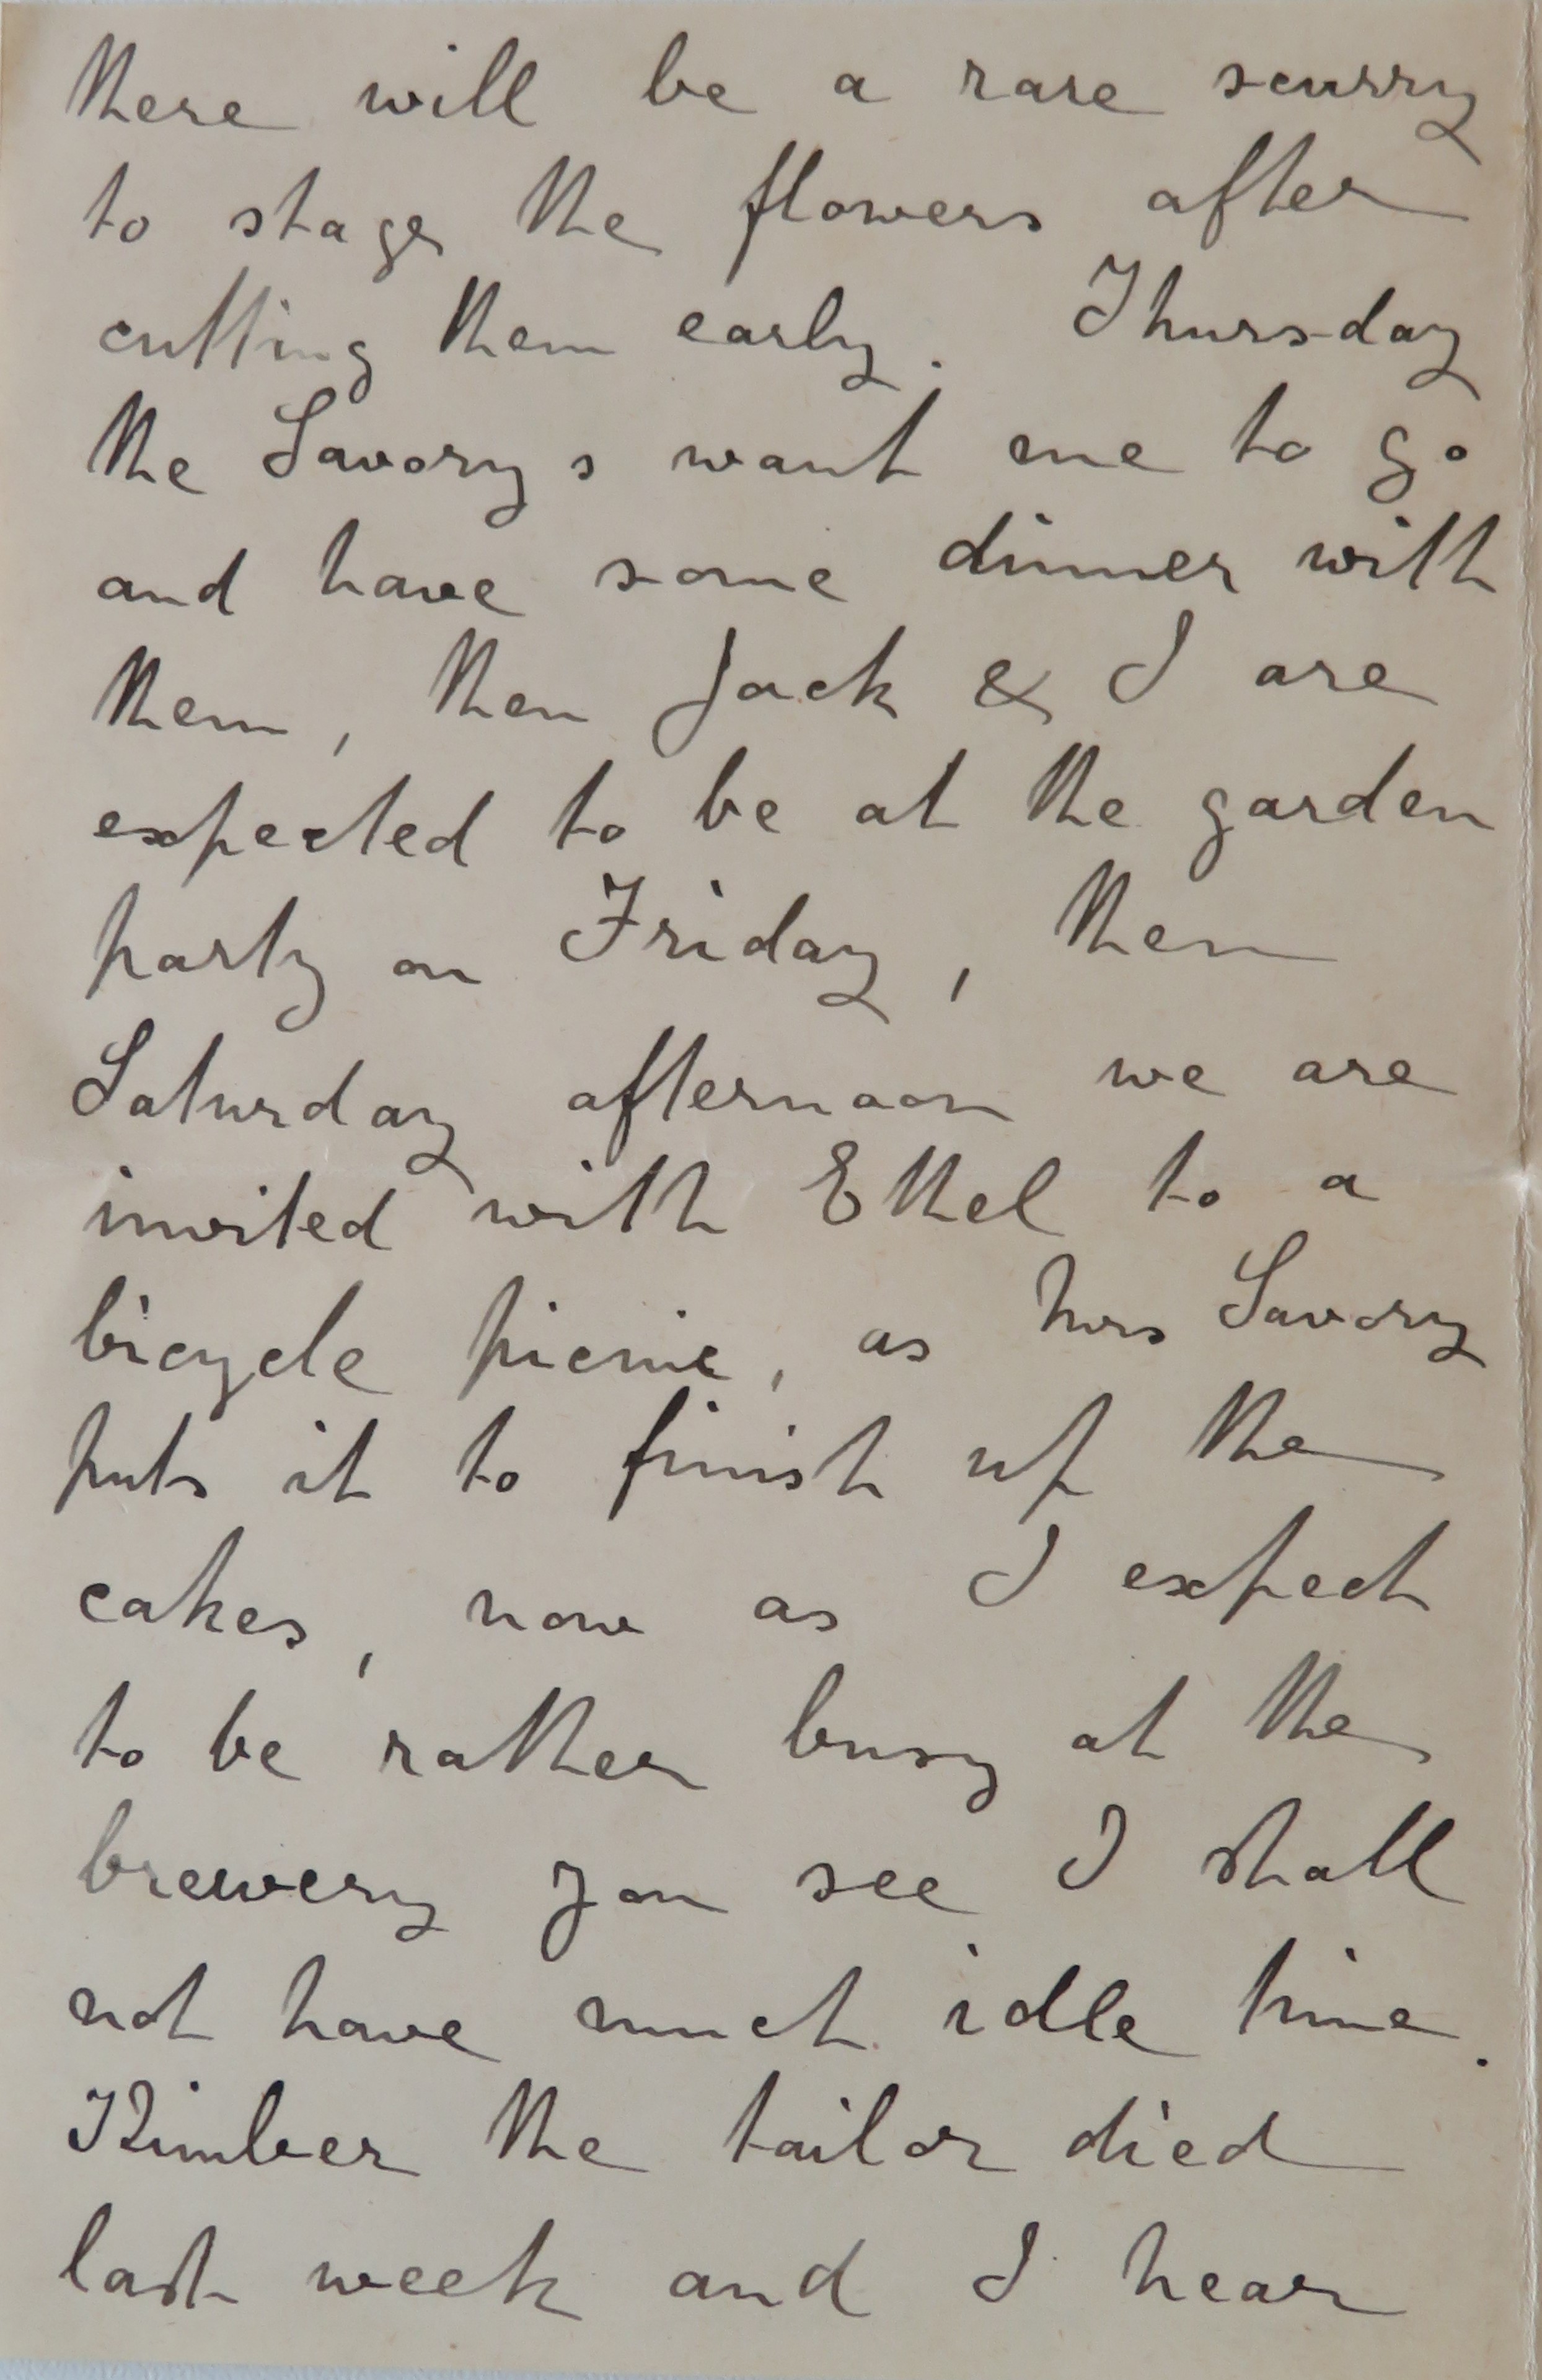 there will be a rare scurry
to stage the flowers after
cutting them early. Thursday
the Savorys want me to go
and have some dinner with
them, then Jack & I are
expected to be at the garden
party on Friday, then
Saturday afternoon we are
invited with Ethel to a
bicycle picnic, as Mrs Savory
puts it to finish up the
cakes, now as I expect
to be rather busy at the
brewery you see I shall
not have much idle time.
Kimber the tailor died
last week and I hear